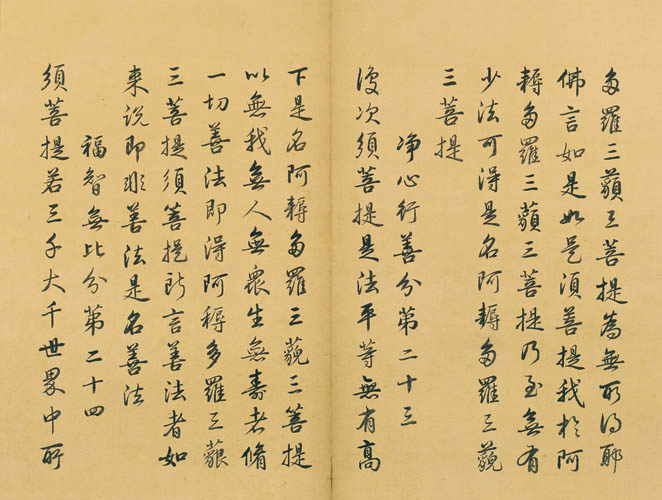 多羅三藐三菩提為無所得耶
佛言如是如是須菩提我於阿
耨多羅三藐三菩提乃至無有
少法可得是名阿耨多羅三藐
三菩提
净心行善分第二十三
復次須菩提是法平等無有高
下是名阿耨多羅三藐三菩提
以無我無人無衆生無壽者脩
一切善法即得阿耨多羅三藐
三菩提須菩提所言善法者如
来说即非善法是名善法
福智無比分第二十四
須菩提若三千大千世界中所